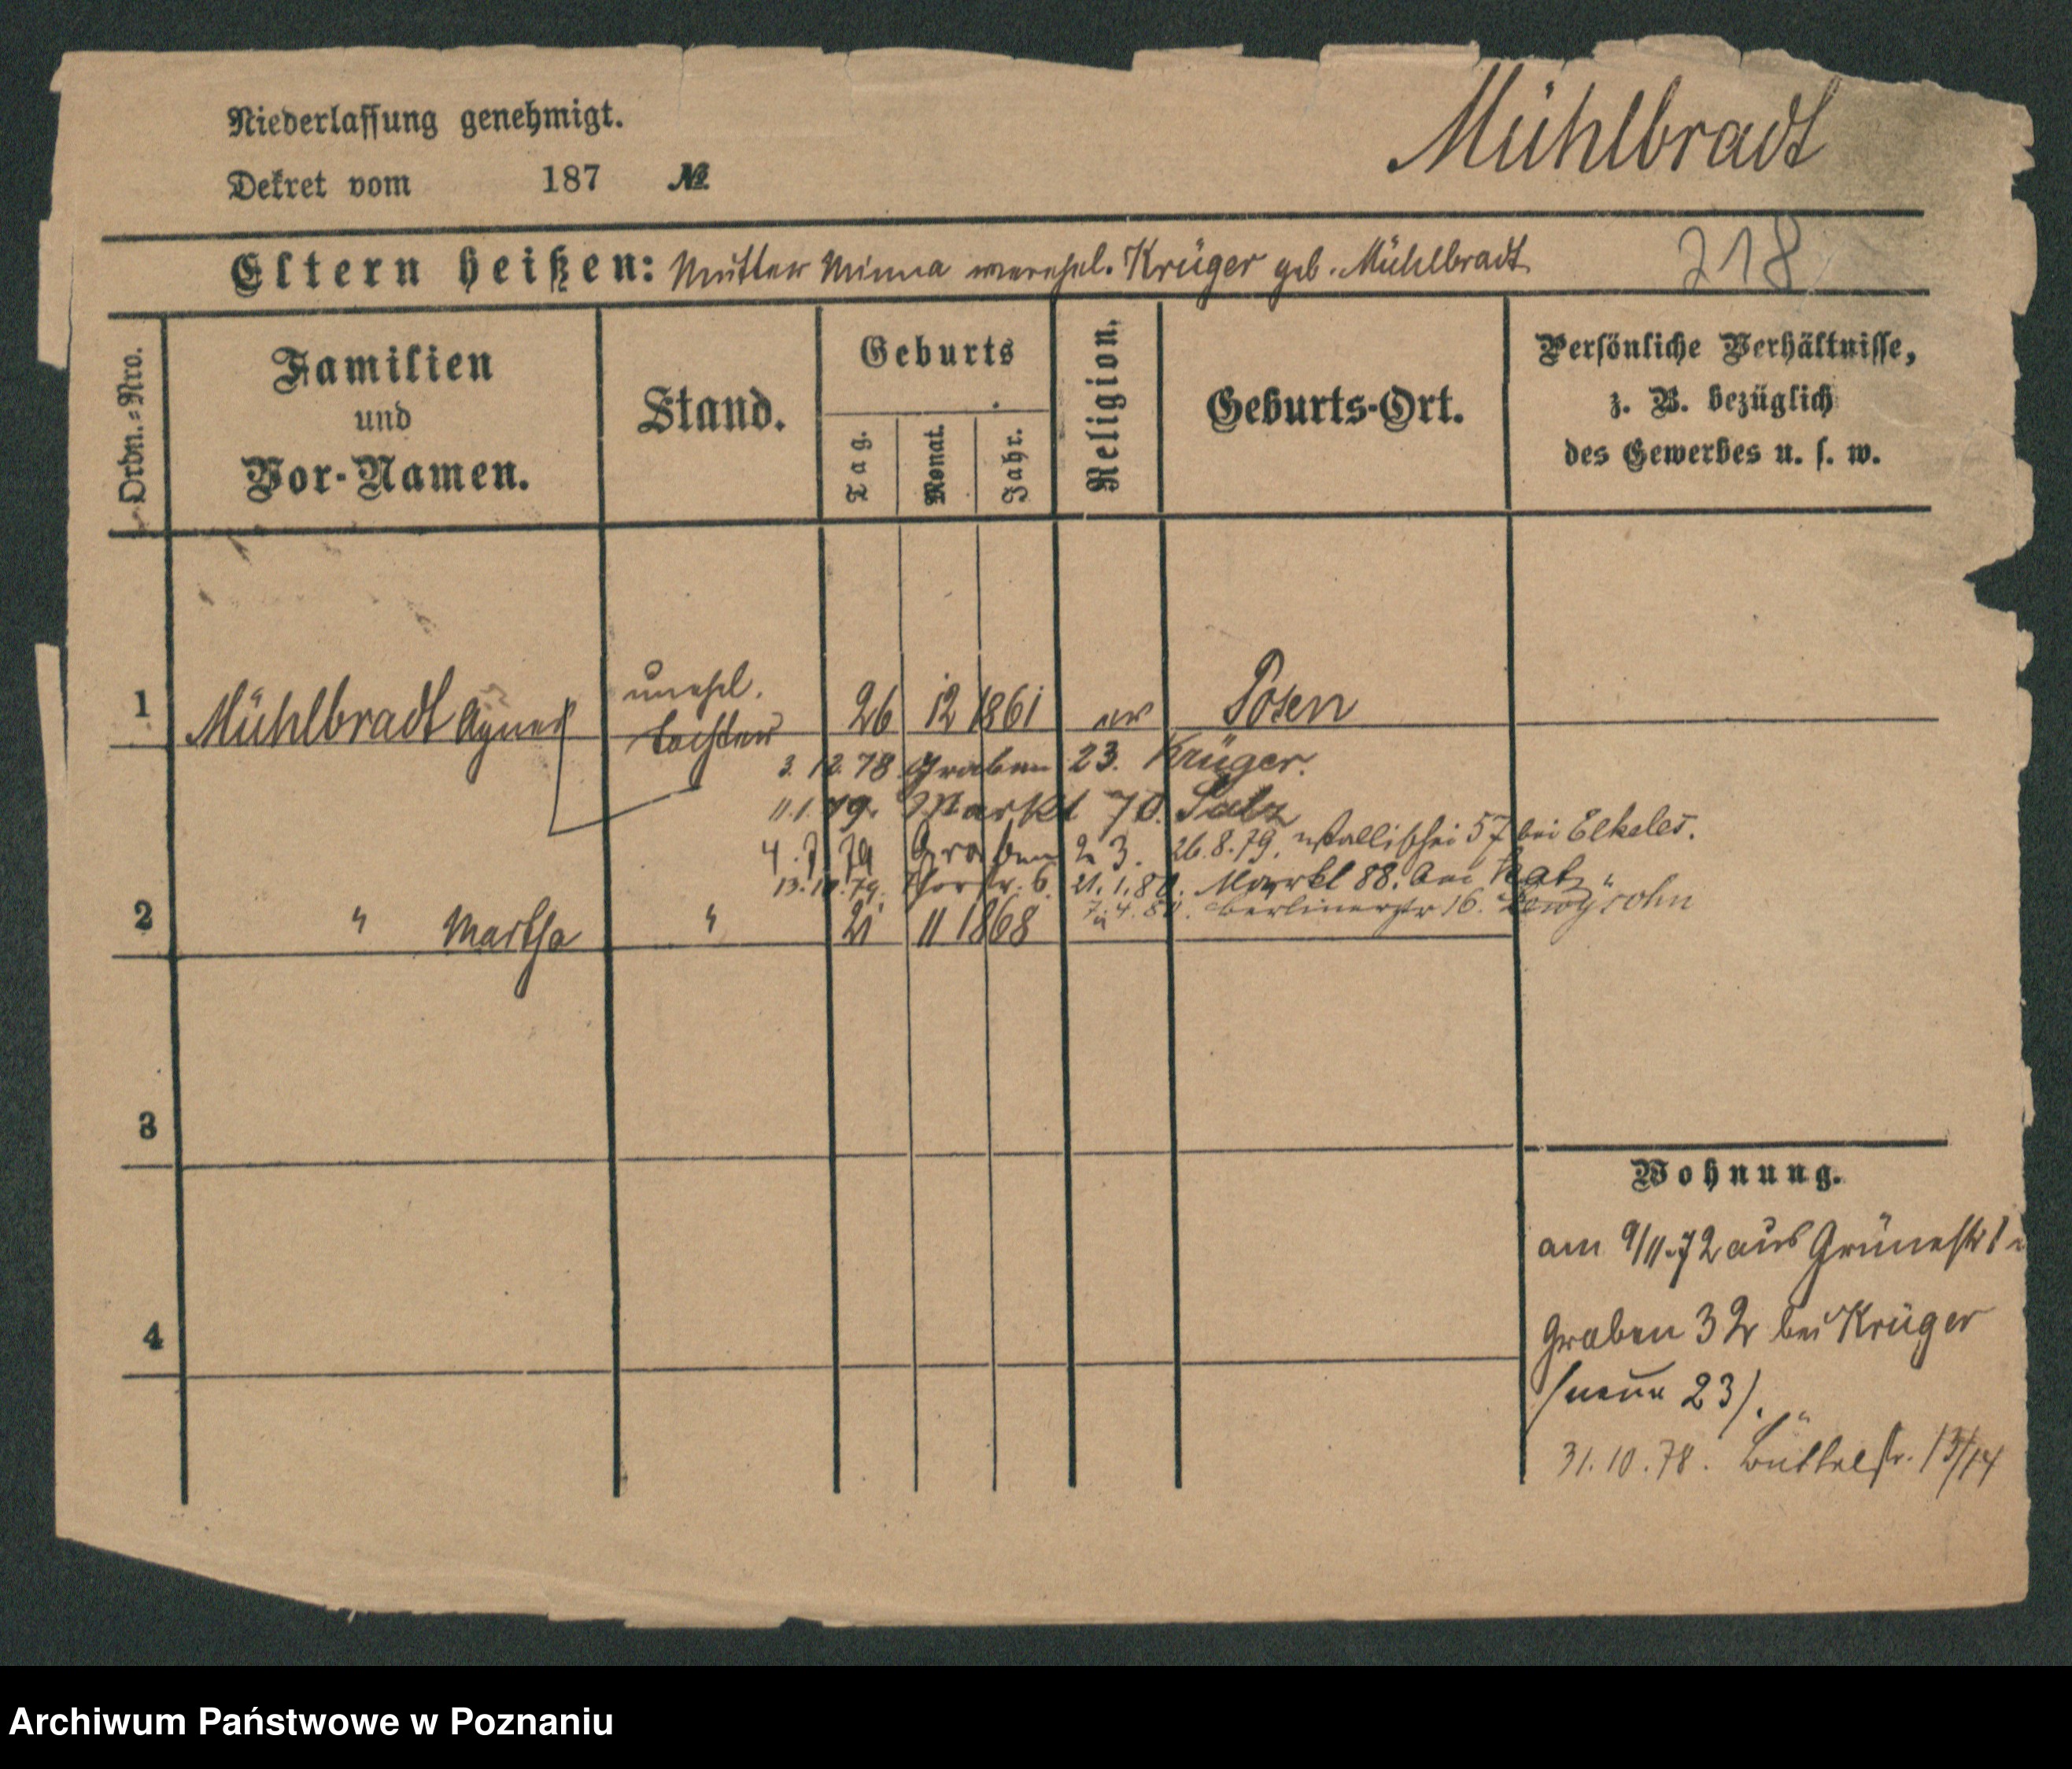 Mühlbradt
Niederlassung genehmigt.
Dekret vom 187 №
Eltern heißen: Mutter Minna verehel. Krüger geb. Mühlbradt
218
Ordn.-Nro.
Familien
und
Vor-Namen.
Stand.
Geburts
Tag.
Monat.
Jahr.
Religion.
Geburts-Ort.
Persönliche Verhältnisse,
z. B. bezüglich
des Gewerbes u. s. w.
1 Mühlbradt Agnes unehel. Tochter 26 12 1861 ev Posen
3. 12. 78. Graben 23. Krüger.
11. 1. 79. Markt 70. Salz
4. 7. 79 Graben 23. 26. 8. 79. Wallischei 57 bei Elkeles.
13. 10. 79. Thorstr. 6. 21. 1. 80. Markt 88. Katz
7. 4. 80. Berlinerstr 16.
2 " Martha " 21 11 1868 "
3
4
Wohnung.
am 9/11.72 aus Grünestr 1
Graben 32 bei Krüger
(neue 23).
31. 10. 78. Büttelstr. 13/14
Archiwum Państwowe w Poznaniu